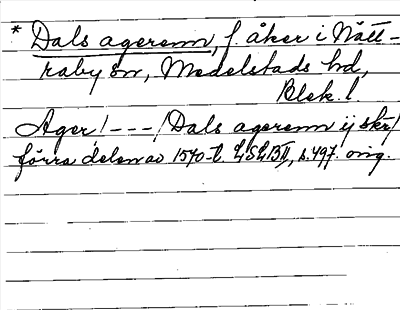 * Dals agerenn, f. åker i Nätt-
raby sn, Medelstads hd,
Blek. l.
Ager/---/Dals agerenn ij skr/
förra delen av 1570-t. LSLBII, s. 497. orig.